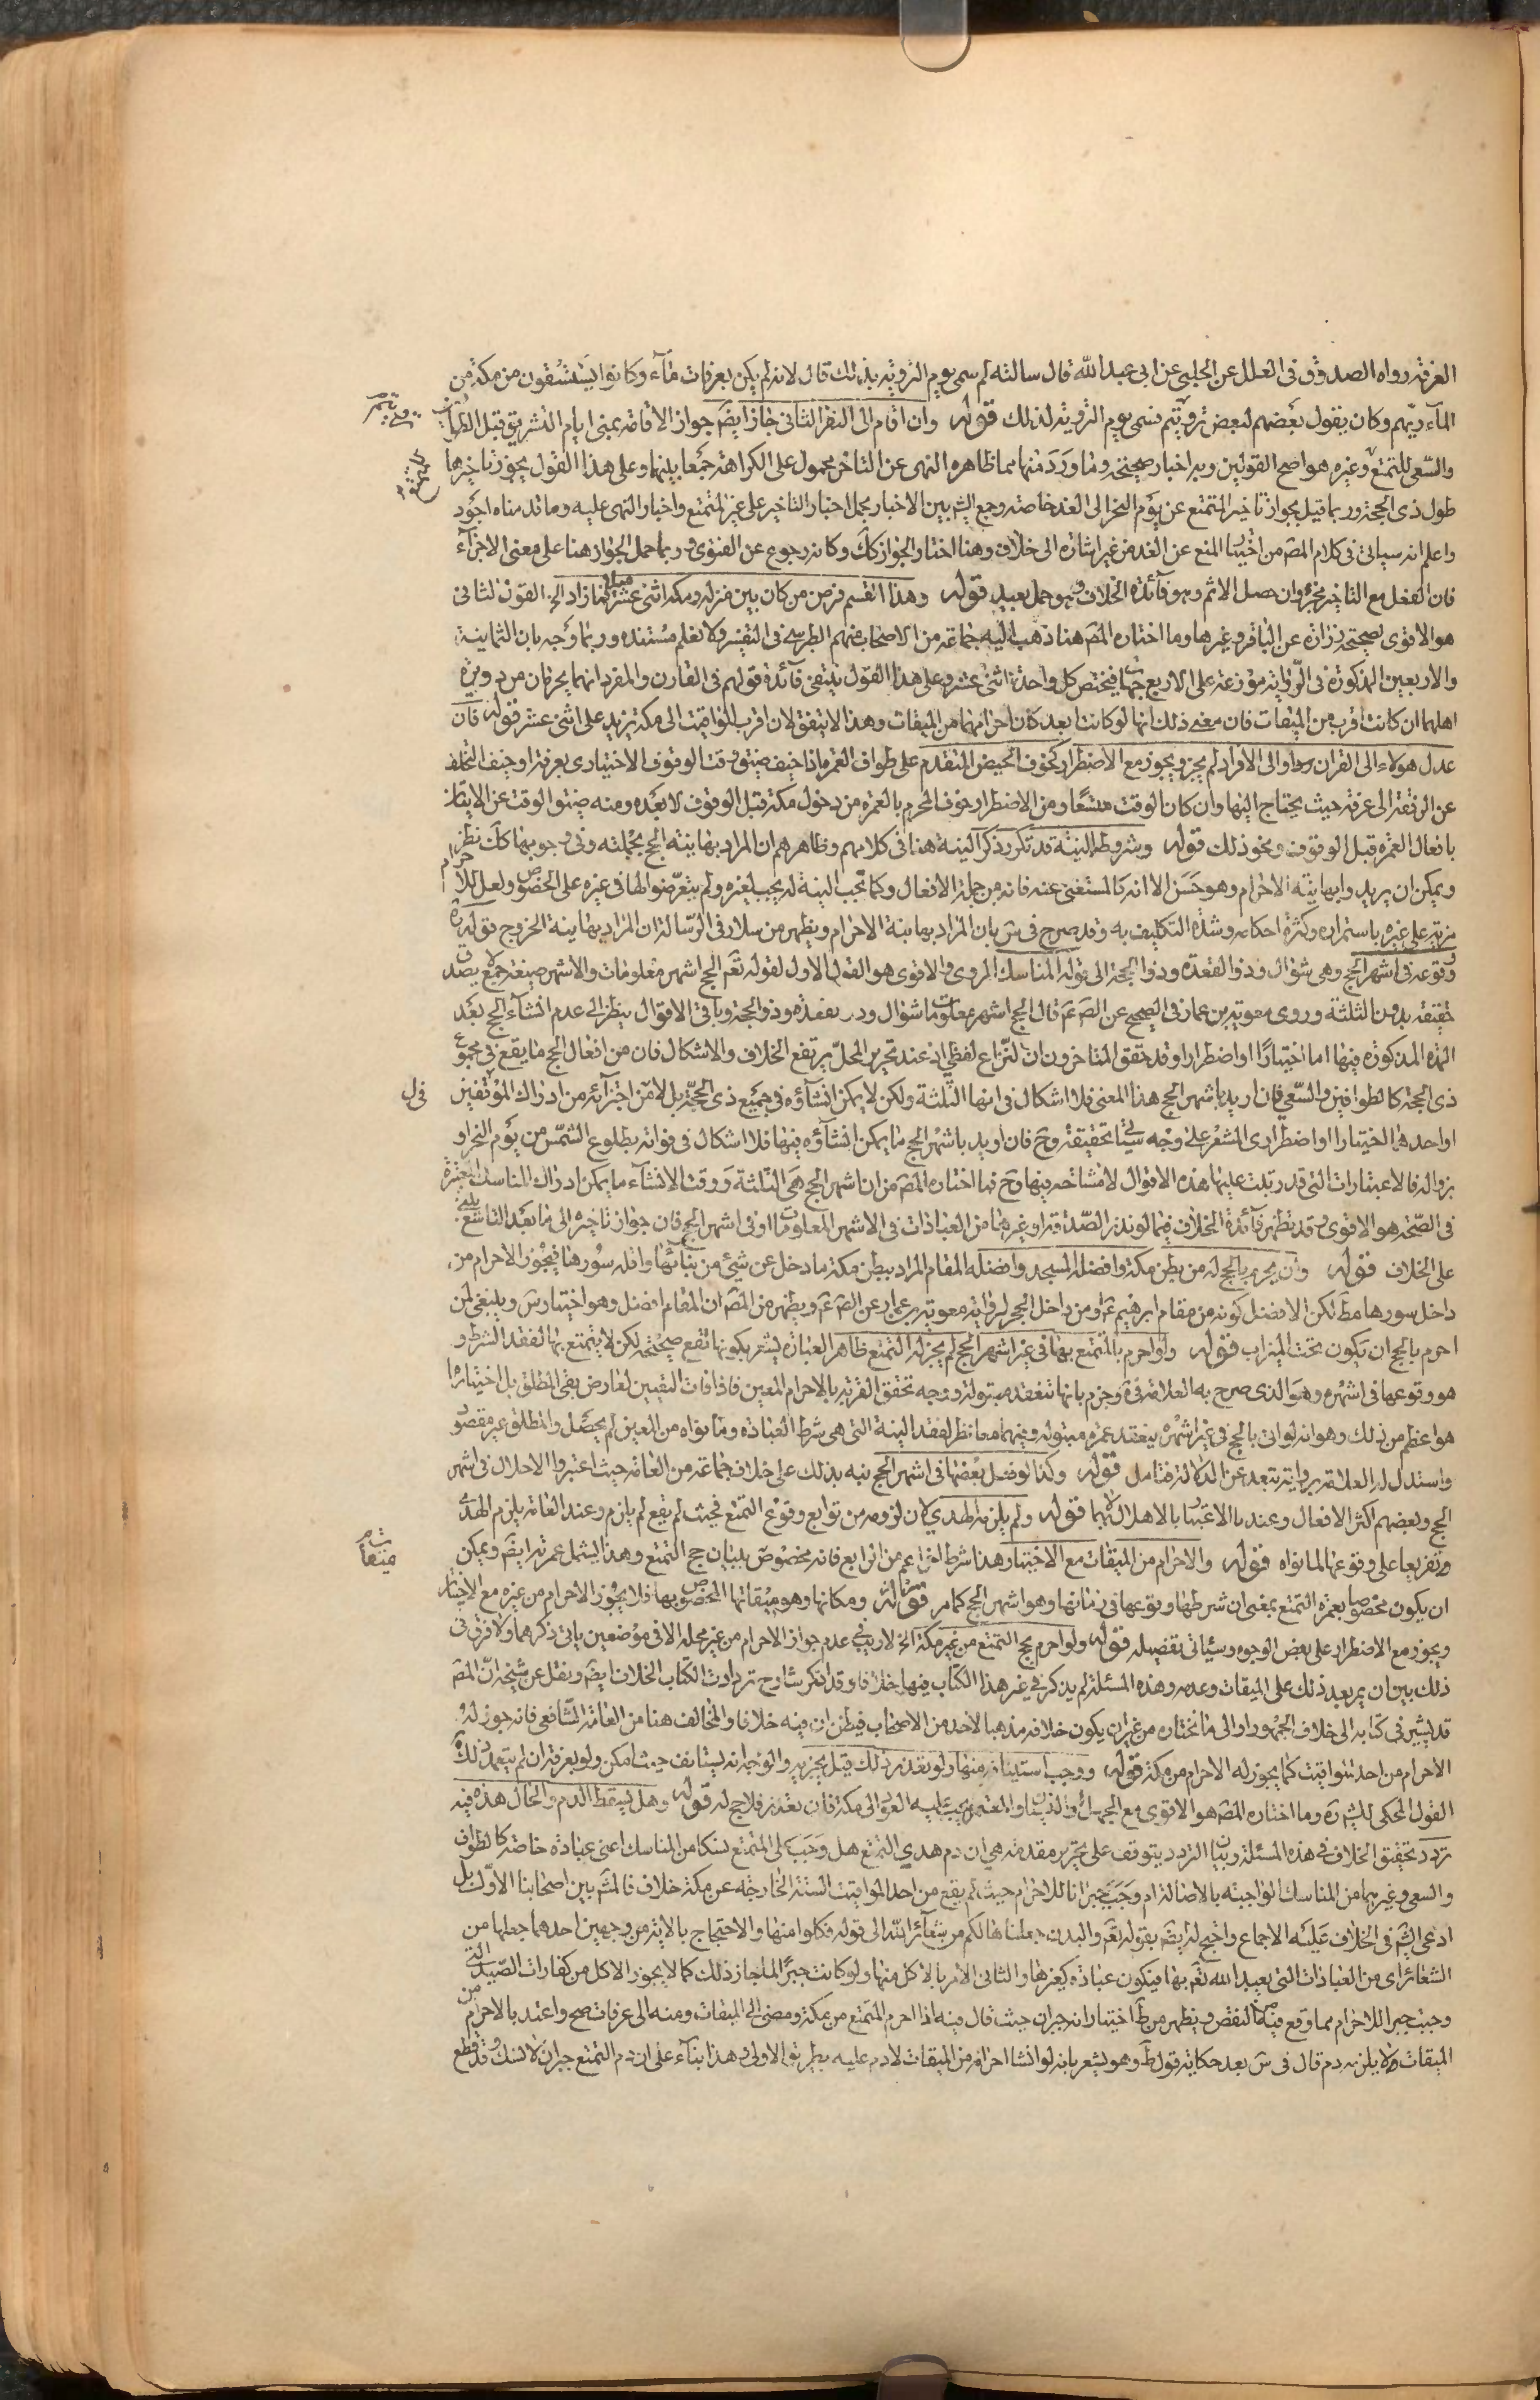 العرفة رواه الصدوق فى العلل عن الحلبى عن ابى عبد الله قال سالته لم سمى يوم التروية بذلك قال لانه لم يكن بعرفات مآء وكانوا يستسقون من مكة من
المآء ريهم وكان يقول بعضهم لبعض ترويتم فسمى يوم التروية لذلك قوله وان اقام الى النفر الثانى جاز ايضً جواز الاقامة بمنى ايام التشريق قبل الطواف
والسعى للمتمتع وغيره هو اصح القولين وبه اخبار صحيحة وما ورد منها مما ظاهره النهى عن التاخر محمول على الكراهة جمعا بينهما وعلى هذا القول يجوز تاخيرها
طول ذى الحجة وربما قيل بجواز تاخير المتمتع عن يوم النحر الى الغد خاصة وجمع الشيخ بين الاخبار بحمل اخبار التاخير على غير المتمتع واخبار النهى عليه وما قدمناه اجود
واعلم انه سياتى فى كلام المصً من اختيار المنع عن الغد من غير اشارة الى خلاف وهنا اختار الجواز كك وكانه رجوع عن الفتوى وربما حمل الجواز هنا على معنى الاجزآء
فان الفعل مع التاخير مجزء وان حصل الاثم وهو فآئدة الخلاف وهو حمل بعيد قوله وهذا القسم فرض من كان بين منزله ومكة اثنى عشر ميلا فما زاد الخ القول الثانى
هو الاقوى لصحيحة زرارة عن الباقر وغيرها وما اختاره المصً هنا ذهب اليه جماعة من الاصحاب منهم الطبرسى فى التفسير ولا نعلم مستنده وربما وجه بان الثمانية
والاربعين المذكورة فى الرواية موزعة على الاربع جهات فيختص كل واحدة اثنى عشر وعلى هذا القول ينتفى فآئدة قولهم فى القارن والمفرد انهما يحرمان من دويرة
اهلهما ان كانت اقرب من الميقات فان معنى ذلك انها لو كانت ابعد كان احرامهما من الميقات وهذا لا يتفق لان اقرب المواقيت الى مكة تزيد على اثنى عشر قوله فان
عدل هولاء الى القران او الى الافراد لم يجز ويجوز مع الاضطرار كخوف الحيض المتقدم على طواف العمرة اذا خيف ضيق وقت الوقوف الاختيارى بعرفة او خيف التخلف
عن الرفقة الى عرفة حيث يحتاج اليها وان كان الوقت متسعا ومن الاضطرار خوف المحرم بالعمرة من دخول مكة قبل الوقوف لا بعده ومنه ضيق الوقت عن الاتيان
بافعال العمرة قبل الوقوف ونحو ذلك قوله وشروطه النية قد تكرر ذكر النية هنا فى كلامهم وظاهرهم ان المراد بها نية الحج بجملته وفى وجوبها كك نظر
ويمكن ان يريدوا بها نية الاحرام وهو حسن الا انه كالمستغنى عنه فانه من جملة الافعال وكما تجب النية له يجب لغيره ولم يتعرضوا لها فى غيره على الخصوص ولعل للاحرام
مزية على غيره باستمراره وكثرة احكامه وشدة التكليف به وقد صرح فى س بان المراد بها نية الاحرام ويظهر من سلار فى الرسالة ان المراد بها نية الخروج قوله
وقوعه فى اشهر الحج وهى شوال وذو القعدة وذو الحجة الى قوله المناسك المروى والاقوى هو القول الاول لقوله تعً الحج اشهر معلومات والاشهر صيغة جمع لا يصدق
حقيقة بدون الثلثة وروى معوية بن عمار فى الصحيح عن الصً عً قال الحج اشهر معلومات شوال وذو القعدة وذو الحجة وباقى الاقوال ينظر الى عدم انشآء الحج بعد
المدة المذكورة فيها اما اختيارًا او اضطرارا وقد حقق المتاخرون ان النزاع لفظى اذ عند تحرير المحل يرتفع الخلاف والاشكال فان من افعال الحج ما يقع فى مجموع
ذى الحجة كالطوافين والسعى فان اريد باشهر الحج هذا المعنى فلا اشكال فى انها الثلثة ولكن لا يمكن انشآؤه فى جميع ذى الحجة بل لا من اجزآئه من ادراك الموقفين
او احدهما اختيارا او اضطرارى المشعر على وجه سياتى تحقيقه وح فان اريد باشهر الحج ما يمكن انشآؤه فيها فلا اشكال فى فواته بطلوع الشمس من يوم النحر او
بزواله فالاعتبارات التى قد رتبت عليها هذه الاقوال لا مشاحة فيها وح فما اختاره المصً من ان اشهر الحج هى الثلثة ووقت الانشآء ما يمكن ادراك المناسك المعتبرة
فى الصحة هو الاقوى وقد تظهر فآئدة الخلاف فيما لو نذر الصدقة او غيرها من العبادات فى الاشهر المعلومات او فى اشهر الحج فان جواز تاخيره الى ما بعد التاسع يبنى
على الخلاف قوله وان يحرم بالحج له من بطن مكة وافضله المسجد وافضله المقام المراد ببطن مكة ما دخل عن شئ من بنآئها واقله سورها فيجوز الاحرام من
داخل سورها مطً لكن الافضل كونه من مقام ابرهيم عً او من داخل الحجر لرواية معوية بن عمار عن الصً عً ويظهر من المصً ان المقام افضل وهو اختيار س وينبغى لمن
احرم بالحج ان يكون تحت الميزاب قوله ولو احرم بالمتمتع بها فى غير اشهر الحج لم يجز له التمتع ظاهر العبارة يشعر بكونها تقع صحيحة لكن لا يتمتع بها لفقد الشرط و
هو وقوعها فى اشهره وهو الذى صرح به العلامة فى ة وجزم بانها تنعقد مبتولة ووجه تحقق القربة بالاحرام المعين فاذا فات التعيين لعارض بقى المطلق بل اختياره
هو اعظم من ذلك وهو انه لو اتى بالحج فى غير اشهره ينعقد عمرة مبتولة وفيهما معا نظر لفقد النية التى هى شرط العبادة وما نواه من المعين لم يحصل والمطلق غير مقصود
واستدل له العلامة برواية تبعد عن الدلالة فتامل قوله وكذا لو فعل بعضها فى اشهر الحج نبه بذلك على خلاف جماعة من العامة حيث اعتبروا الاحلال فى اشهر
الحج وبعضهم اكثر الافعال وعندنا الاعتبار بالاهلال بهما قوله ولم يلزمه الهدى لان لزومه من توابع وقوع التمتع فحيث لم يقع لم يلزم وعند العامة يلزم الهدى
وتفريعا على وقوعها لما نواه قوله والاحرام من الميقات مع الاختيار هذا شرط اعم من الرابع فانه مخصوص ببيان حج التمتع وهذا يشمل عمرته ايضً ويمكن
ان يكون مخصوصا بعمرة التمتع بمعنى ان شرطها وقوعها فى زمانها وهو اشهر الحج كما مر قوله ومكانها وهو ميقاتها المخصوص بها فلا يجوز الاحرام من غيره مع الاختيار
ويجوز مع الاضطرار على بعض الوجوه وسياتى تفصيله قوله ولو احرم بحج التمتع من غير مكة الخ لا ريب فى عدم جواز الاحرام من غير محله الا فى موضعين ياتى ذكرهما ولا فرق فى
ذلك بين ان يمر بعد ذلك على الميقات وعدمه وهذه المسئلة لم يذكر فى غير هذا الكتاب فيها خلافا وقد انكر شارح ترددات الكتاب الخلاف ايضً ونقل عن شيخه انّ المصً
قد يشير فى كتابه الى خلاف الجمهور او الى ما يختاره من غير ان يكون خلافه مذهبا لاحد من الاصحاب فيظن ان فيه خلافا والمخالف هنا من العامة الشافعى فانه جوز له
الاحرام من احد المواقيت كما يجوز له الاحرام من مكة قوله ووجب استينافه منها ولو تعذر ذلك قيل يجزيه والوجه انه يستانف حيث امكن ولو بعرفة ان لم يتعمد ذلك
القول المحكى للشيخ رة وما اختاره المصً هو الاقوى مع الجهل او النسيان والمتعمد يجب عليه العود الى مكة فان تعذر فلا حج له قوله وهل يسقط الدم والحال هذه فيه
تردد تحقيق الخلاف فى هذه المسئلة وبيان التردد يتوقف على تحرير مقدمة هى ان دم هدى التمتع هل وجب على المتمتع نسكا من المناسك اعنى عبادة خاصة كالطواف
والسعى وغيرهما من المناسك الواجبة بالاصالة ام وجب جبرانا للاحرام حيث لم يقع من احد المواقيت الستة الخارجة عن مكة خلاف فالمشً بين اصحابنا الاوّل بل
ادعى الشيخ فى الخلاف عليه الاجماع واحتج له ايضً بقوله تعً والبدن جعلناها لكم من شعآئر الله الى قوله فكلوا منها والاحتجاج بالاية من وجهين احدهما جعلها من
الشعائر اى من العبادات التى يعبد الله تعً بها فيكون عبادة كغيرها والثانى الامر بالاكل منها ولو كانت جبرًا لما جاز ذلك كما لا يجوز الاكل من كفارات الصيد التى
وجبت جبرا للاحرام مما وقع فيه من النقص ويظهر من ط اختيار انه جبران حيث قال فيه اذا احرم المتمتع من مكة ومضى الى الميقات ومنه الى عرفات صح واعتد بالاحرام من
الميقات ولا يلزمه دم قال فى س بعد حكاية قول ط وهو يشعر بانه لو انشا احرامه من الميقات لا دم عليه بطريق الاولى وهذا بنآء على ان دم التمتع جبران لا نسك وقد قطع